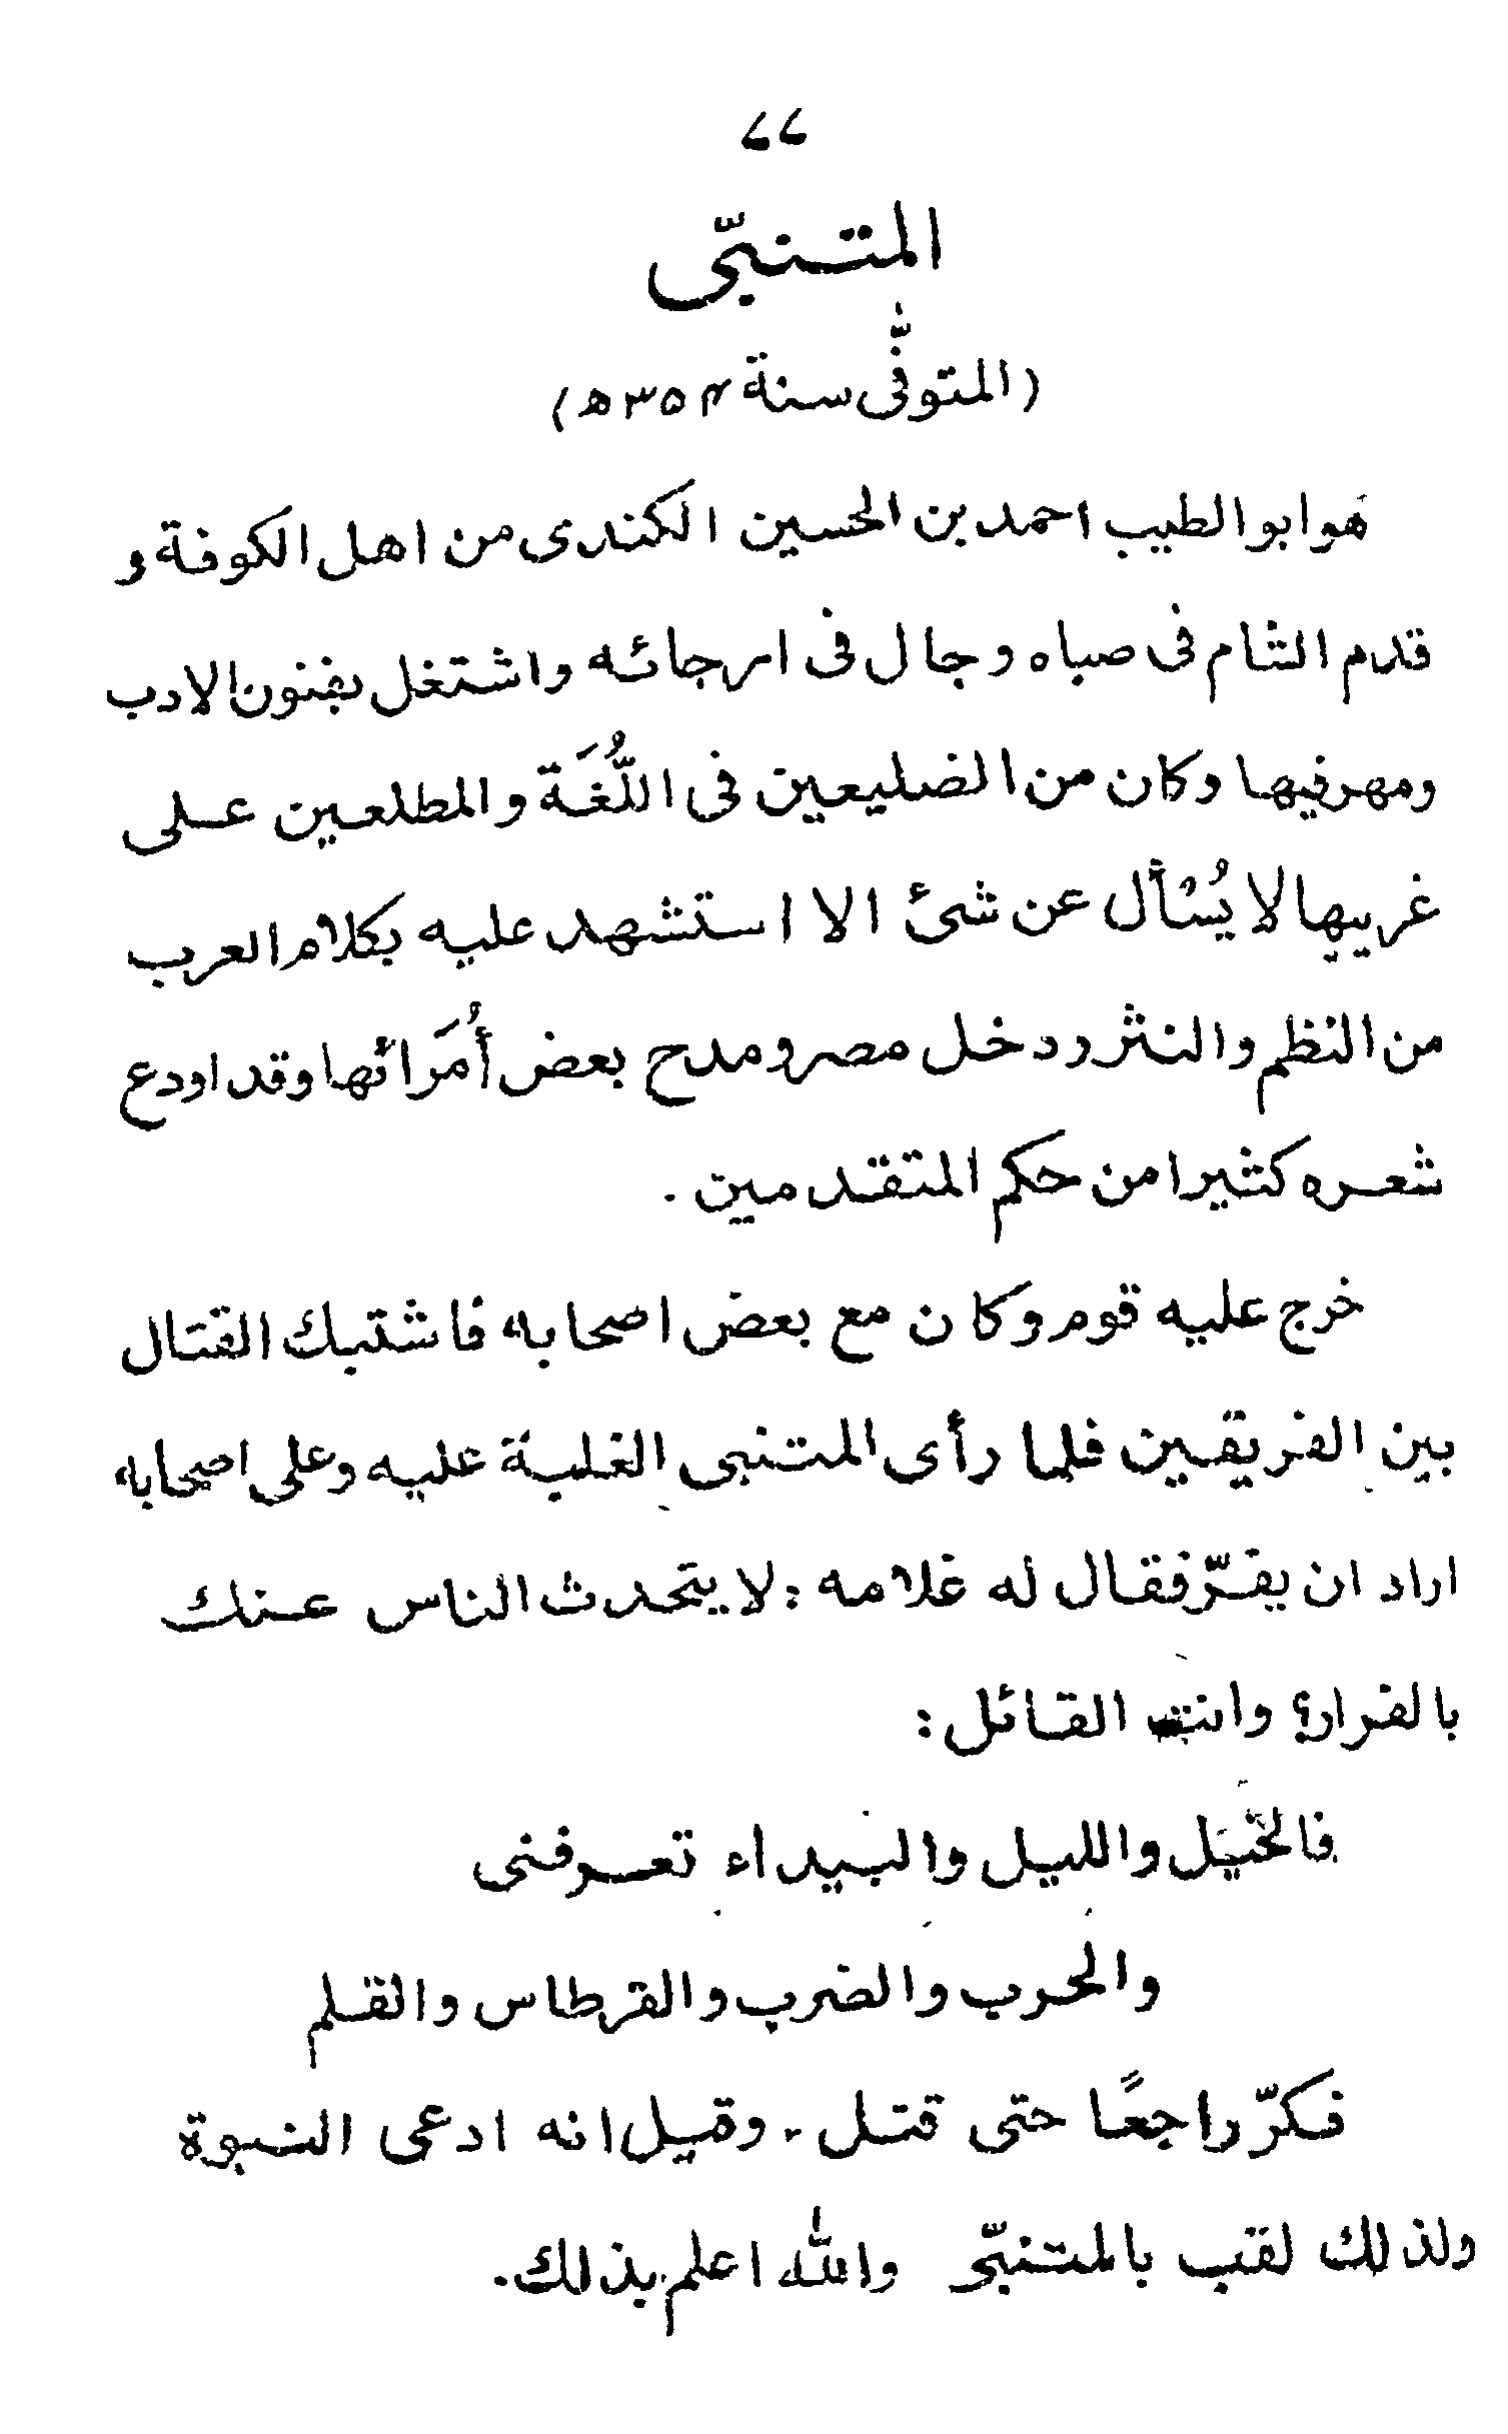 ۷۷
المتنبّى
(المتوفّٰى سنة ۳۵۴ھ)
هوابوالطيب احمد بن الحسين الكندى من اهل الكوفة و
قدم الشام فى صباه وجال فى ارجائه واشتغل بفنون الادب
ومهر فيها وكان من الضليعين فى اللُّغَة والمطلعين على
غريبها لا يُسْأل عن شئ الا استشهد عليه بكلام العرب
من النظم والنثر ودخل مصر ومدح بعض أُمَرائها وقد اودع
شعره كثيرا من حكم المتقدمين ۔
خرج عليه قوم وكان مع بعض اصحابه فاشتبك القتال
بين الفريقين فلما رأى المتنبى الغلبة عليه وعلى اصحابه
اراد ان يفرّ فقال له غلامه : لا يتحدث الناس عنك
بالفرار؟ وانت القائل :
فالخيَل والليل والبيداء تعرفنى
والحرب والضرب والقرطاس والقلم
فكرّ راجعًا حتى قتل ۔ وقيل انه ادعى النبوة
ولذلك لقب بالمتنبّى والله اعلم بذلك ۔